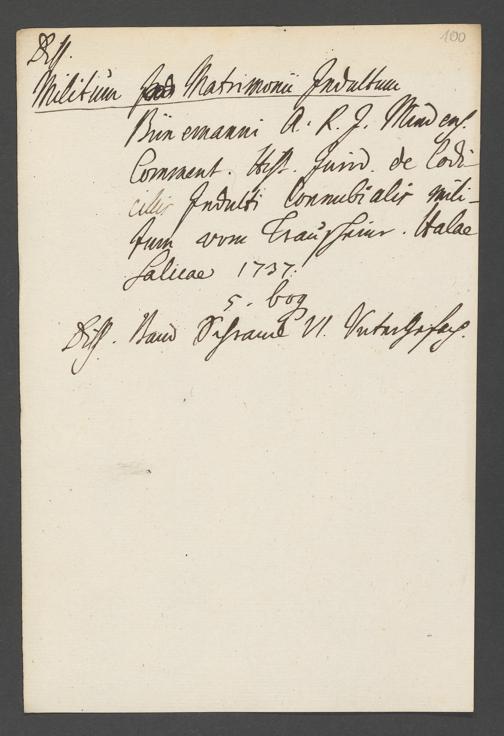 100
Diss.
Militum Matrimonii Indultum
Bünemanni A. R. J. Mindens.
Comment. Hist. Jurid. de Codi-
cillis Indulti Connubialis mili-
tum vom Trauschein. Halae
Salicae 1737.
5. bog
Diss. Band Schrank VI. Untergesch.